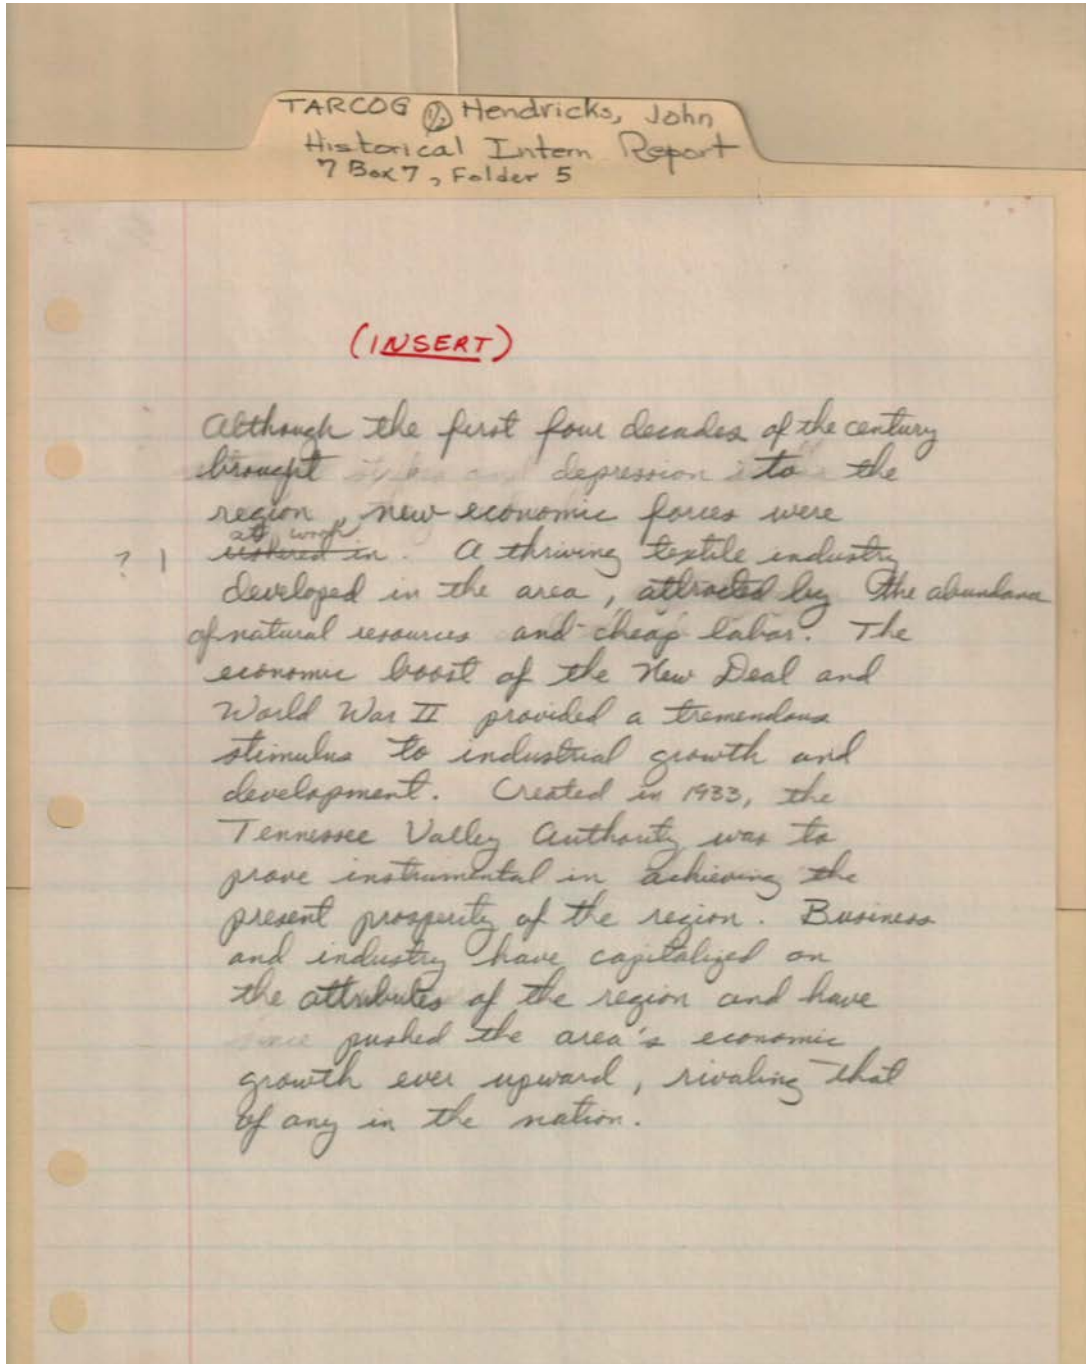 TARCOG 1/2 Hendricks, John
Historical Intern Report
7 Box 7, Folder 5
(INSERT)
Although the first four decades of the century
brought depression to the
region, new economic forces were
at work
? | ushered in. A thriving textile industry
developed in the area, attracted by the abundance
of natural resources and cheap labor. The
economic boost of the New Deal and
World War II provided a tremendous
stimulus to industrial growth and
development. Created in 1933, the
Tennessee Valley Authority was to
prove instrumental in achieving the
present prosperity of the region. Business
and industry have capitalized on
the attributes of the region and have
since pushed the area's economic
growth ever upward, rivaling that
of any in the nation.